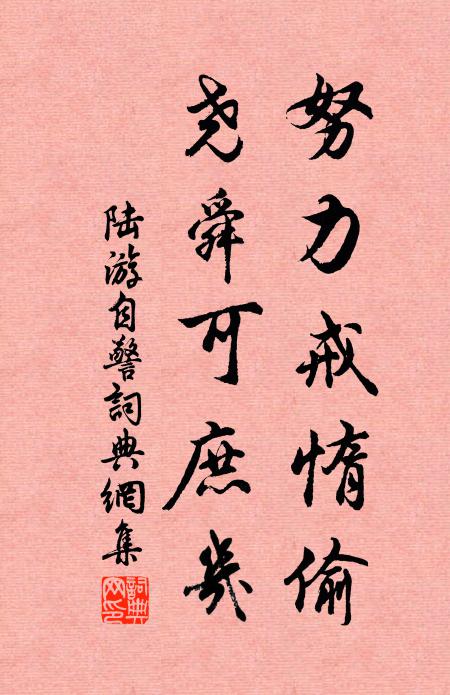 努力戒惰偷
尧舜可庶幾
陆游自警詞典網集
詞典
网印